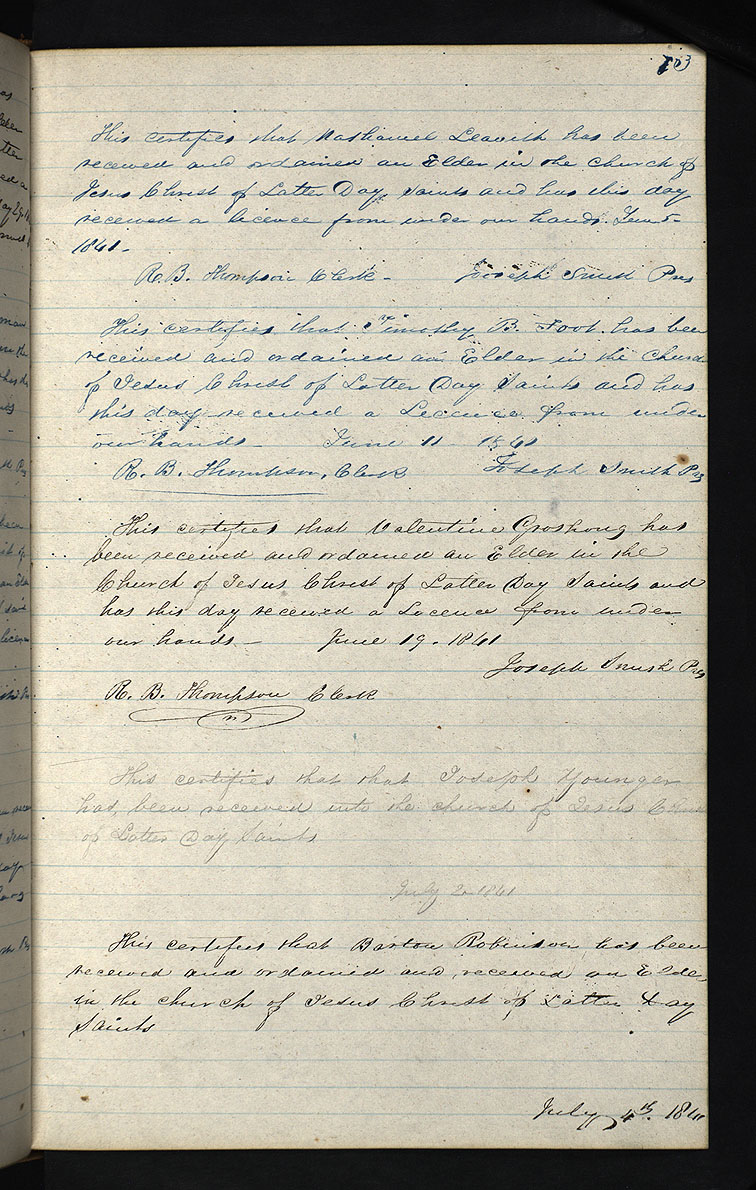 103
This certifies that Nathaniel Leavith has been
received and ordained an Elder in the church of
Jesus Christ of Latter Day Saints and has this day
received a licence from under our hands. June 5-
1841-
R. B. Thompson Clerk - Joseph Smith Pres
This certifies, that Timothy B. Foot has been
received and ordained an Elder in the Church
of Jesus Christ of Latter Day Saints and has
this day received a Licence from under
our hands - June 11 - 1841
R. B. Thompson, Clerk Joseph Smith Pres
This certifies that Valentine Groshong has
been received and ordained an Elder in the
Church of Jesus Christ of Latter Day Saints and
has this day received a Licence from under
our hands - June 19. 1841
Joseph Smith Pres
R. B. Thompson Clerk
This certifies that that Joseph Younger
has, been received into the church of Jesus Christ
of Latter Day Saints
July 2. 1841
This certifies that Barton Robinson has been
received and ordained and, received an Elder
in the church of Jesus Christ of Latter Day
Saints
July 4th. 1841